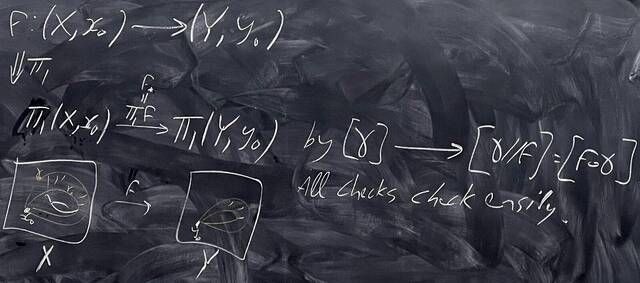 F: (X, x₀) ⟶ (Y, y₀)
⇓ π₁
F*
=
π₁(X, x₀) ⟶ π₁F π₁(Y, y₀) by [γ] ⟶ [γ//F] = [F∘γ]
All checks check easily.
F
⟶
x₀
y₀
X
Y